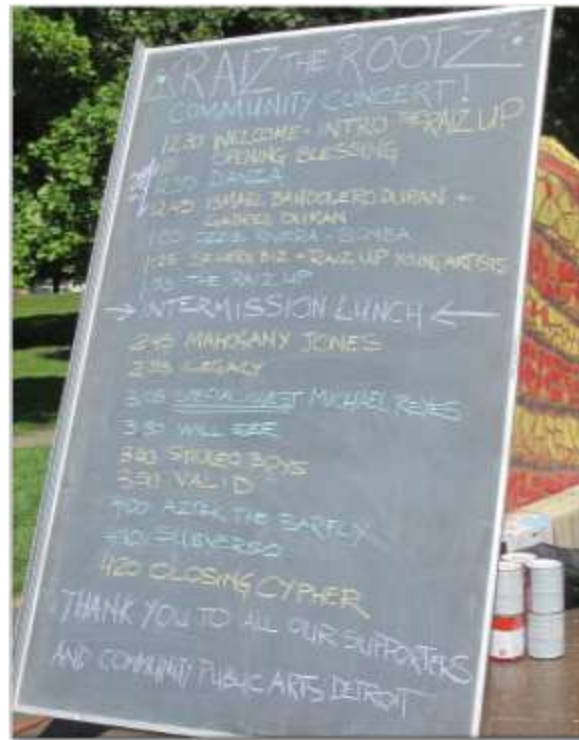 RAIZ THE ROOTZ
COMMUNITY CONCERT!
12:30 WELCOME + INTRO THE RAIZ UP
OPENING BLESSING
DANZA
12:45 ISMAEL BANDOLERO DURAN +
GABRIEL DURAN
RIVERA - BOMBA
1:25 BIZ + RAIZ UP YOUNG ARTISTS
THE RAIZ UP
INTERMISSION LUNCH
2:45 MAHOGANY JONES
LEGACY
SPECIAL GUEST MICHAEL REYES
3:30 WILL SEE
BOYS
VALID
400 AZTEK THE BARFLY
SUBVERSO
420 CLOSING CYPHER
THANK YOU TO ALL OUR SUPPORTERS
AND COMMUNITY PUBLIC ARTS DETROIT